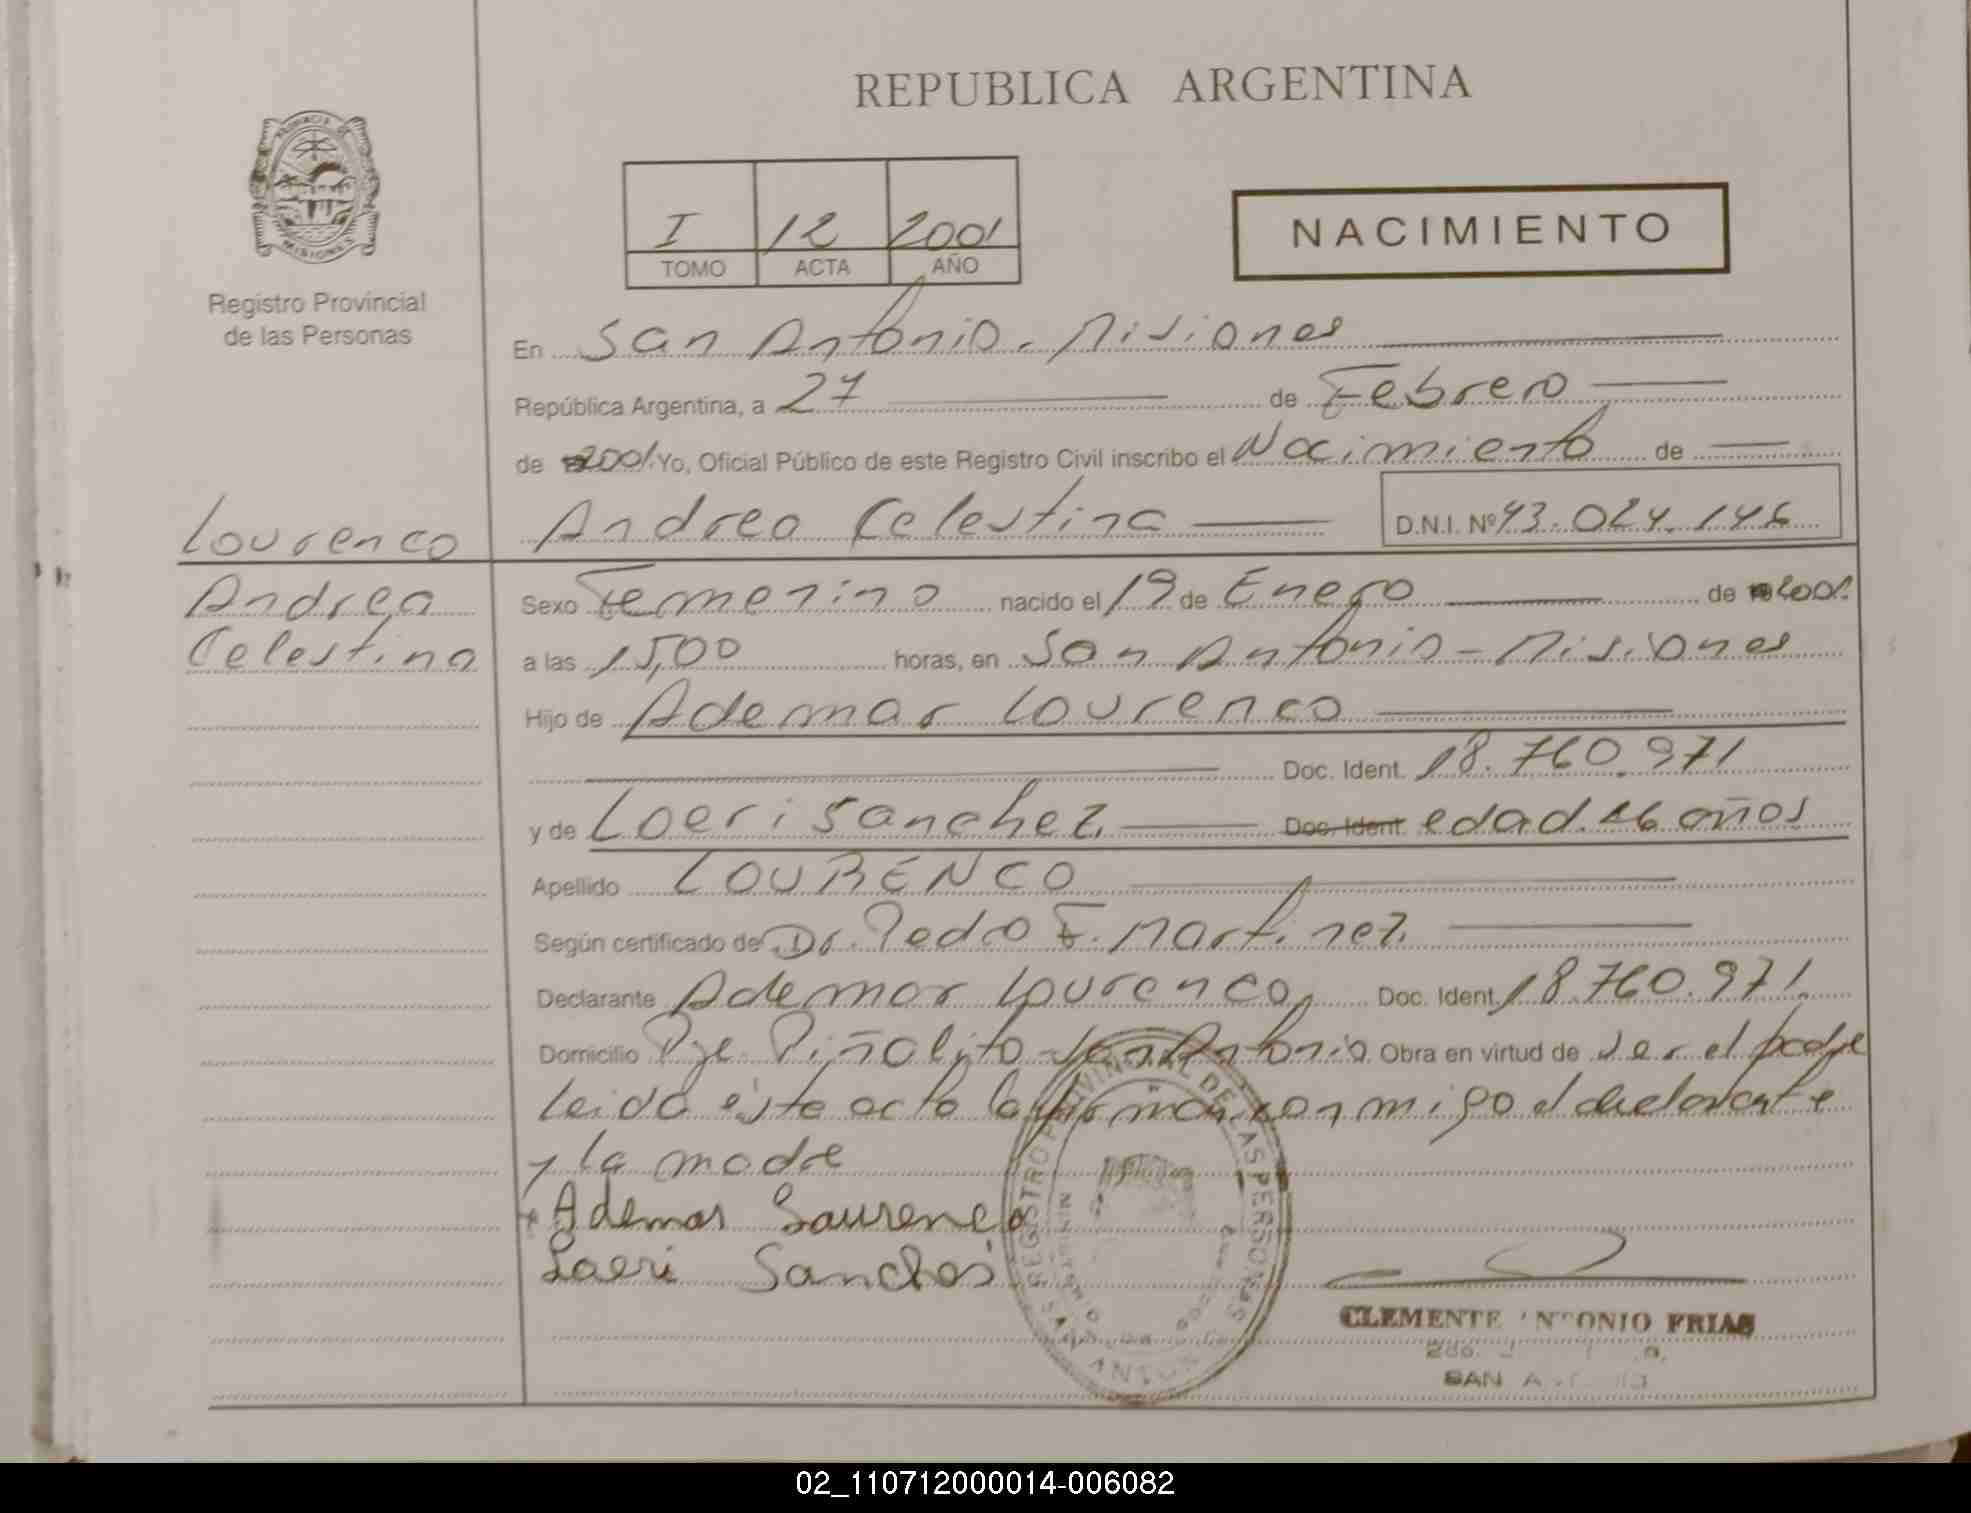 REPUBLICA ARGENTINA
PROVINCIA DE
MISIONES
Registro Provincial
de las Personas
I 12 2001
TOMO ACTA AÑO
NACIMIENTO
En San Antonio - Misiones
República Argentina, a 27 de Febrero
de 2001 Yo, Oficial Público de este Registro Civil inscribo el Nacimiento de
Andrea Celestina D.N.I. Nº 43.024.146
Lourenco
Andrea
Celestina
Sexo Femenino nacido el 19 de Enero de 2001
a las 15,00 horas, en San Antonio - Misiones
Hijo de Ademar Lourenco
Doc. Ident. 18.760.971
y de Loeri Sanchez Doc. Ident. edad 26 años
Apellido LOURENCO
Según certificado de Dr. Pedro E. Martinez
Declarante Ademar Lourenco Doc. Ident. 18.760.971
Domicilio Pje. Piñalito San Antonio Obra en virtud de ser el padre
leida éste acta la firman conmigo el declarante
y la madre
Ademar Laurenco
Laeri Sanches
REGISTRO PROVINCIAL DE LAS PERSONAS
CLEMENTE ANTONIO FRIAS
SAN
02_110712000014-006082